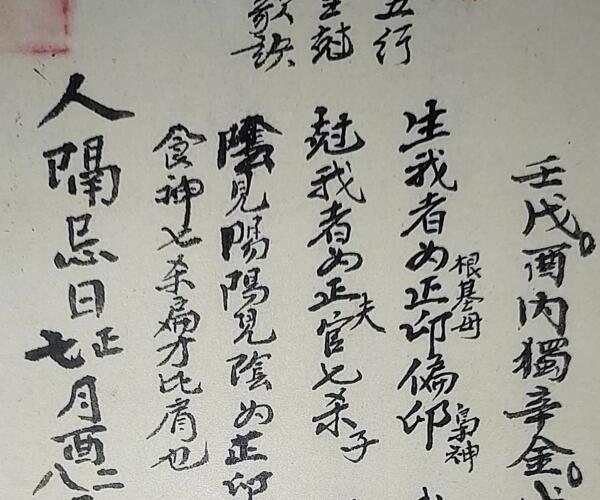 壬戌酉內獨辛金
生我者为正印偏印
根基母
梟神
五行
尅我者为正官七杀
夫
子
生尅
歌訣
陰見陽陽見陰为正印
食神七杀扁才比肩也
人隔忌日
正七月酉
二八